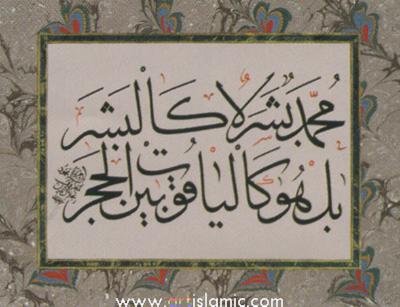 محمد بشر لا كالبشر
بل هو كالياقوت بين الحجر
www.artislamic.com